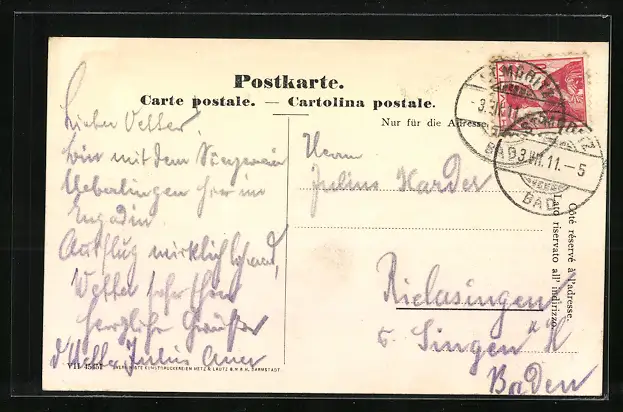 Postkarte.
Carte postale. — Cartolina postale.
Nur für die Adresse.
Côté réservé à l'adresse.
Lato riservato all' indirizzo.
ST. MORITZ
BAD
3.VII.11.–5
Lieber Vetter!
bin mit dem Singverein
Ueberlingen hier im
Engadin.
Ausflug wirklich lohnend,
Wetter sehr schön
herzliche Grüße
d'Vetter Julius Auer
Herrn
Julius Harder
Rielasingen
b. Singen a/H
Baden
VEREINIGTE KUNSTDRUCKEREIEN METZ & LAUTZ G.M.B.H. DARMSTADT